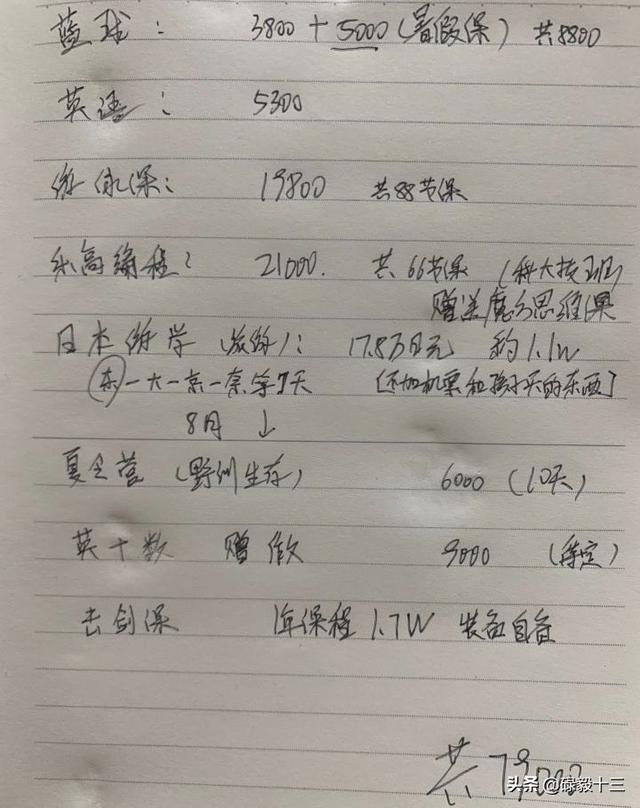 蓝球: 3800 + 5000 (暑假保) 共8800
英语: 5300
游泳保: 19800 共88节保
乐高编程: 21000. 共66节保 (科大接班)
赠送魔方思维课
日本游学 (旅跨): 17.8万日元 约1.1w
东一大一京一奈等7天 [不加机票和孩子买的东西]
8月 ↓
夏令营 (野外生存) 6000 (10天)
英+数 赠 9000 (待定)
击剑保 1年保程 1.7W 装备自备
共79000
头条@碌毅十三